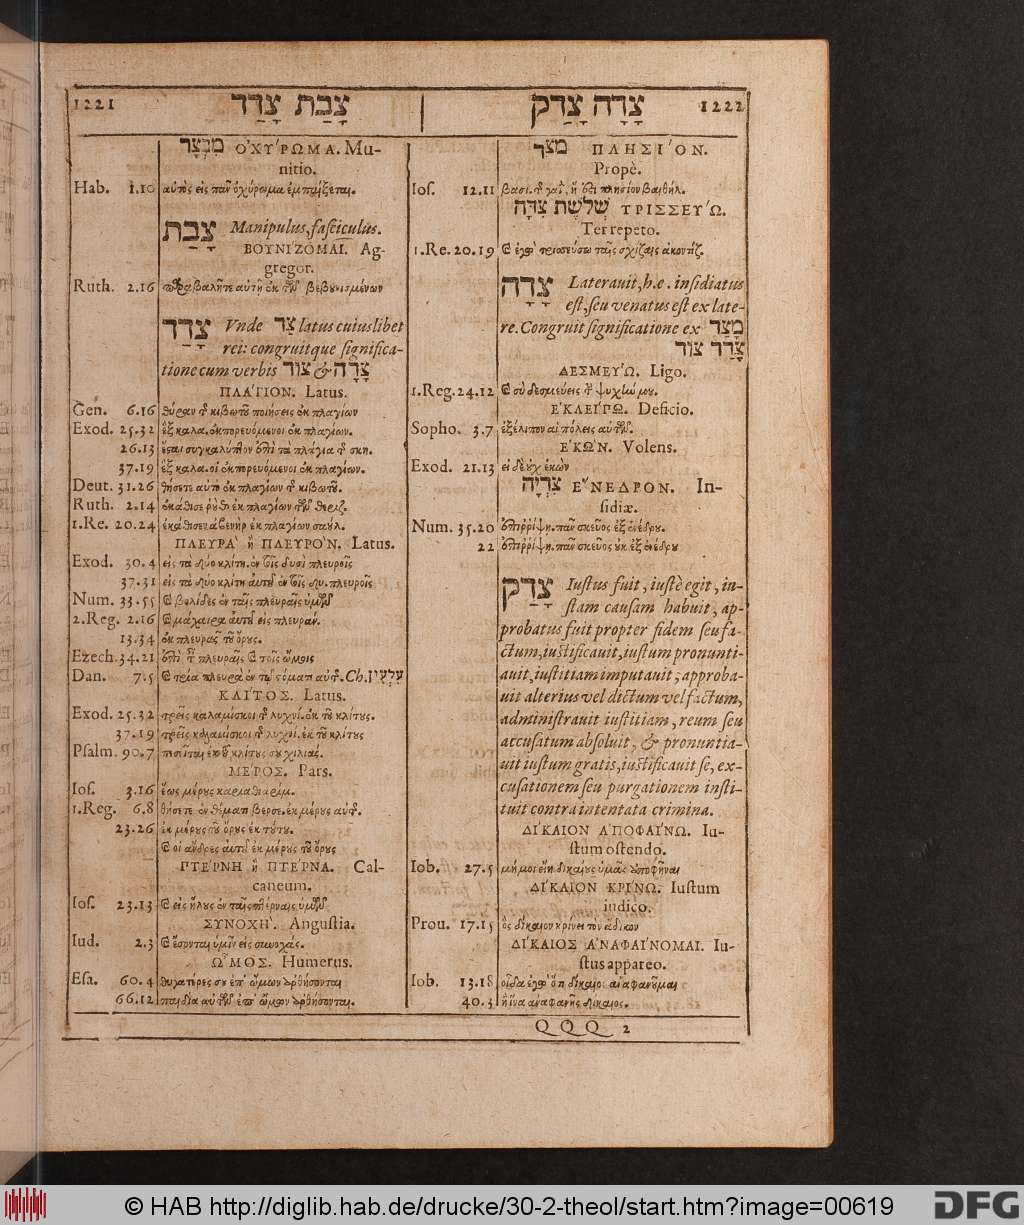 1221 צָבַת צָדַד
צָדָה צָדַק 1222
מִבְצָר ΟΧΥΡΩΜΑ. Mu-
nitio.
Hab. 1.10 αὐτὸς εἰς πᾶν ὀχύρωμα ἐμπαίξεται.
צָבַת Manipulus, fasciculus.
ΒΟΥΝΙΖΟΜΑΙ. Ag-
gregor.
Ruth. 2.16 παραβαλῆτε αὐτῇ ἐκ τῶν βεβουνισμένων
צָדַד Vnde צַד latus cuiuslibet
rei: congruitque significa-
tione cum verbis צוּד & צָדָה
ΠΛΑΓΙΟΝ. Latus.
Gen. 6.16 θύραν τῆς κιβωτοῦ ποιήσεις ἐκ πλαγίων
Exod. 25.32 ἓξ καλα. ἐκπορευόμενοι ἐκ πλαγίων.
26.13 ἔσται συγκαλύπτον ἐπὶ τὰ πλάγια τῆς σκη.
37.19 ἓξ καλα. οἱ ἐκπορευόμενοι ἐκ πλαγίων.
Deut. 31.26 θήσετε αὐτὸ ἐκ πλαγίων τῆς κιβωτοῦ.
Ruth. 2.14 ἐκάθισε ῥοὺθ ἐκ πλαγίων τῶν θεριζ.
1.Re. 20.24 ἐκάθισεν ἀβενὴρ ἐκ πλαγίων σαούλ.
ΠΛΕΥΡΑ ἢ ΠΛΕΥΡΟΝ. Latus.
Exod. 30.4 εἰς τὰ δύο κλίτη. ἐν τοῖς δυσὶ πλευροῖς
37.31 εἰς τὰ δύο κλίτη αὐτοῦ ἐν τοῖς δυ. πλευροῖς
Num. 33.55 καὶ βολίδες ἐν ταῖς πλευραῖς ὑμῶν
2.Reg. 2.16 καὶ μάχαιρα αὐτοῦ εἰς πλευράν.
13.34 ἐκ πλευρᾶς τοῦ ὄρους.
Ezech. 34.21 ἐπὶ ταῖς πλευραῖς καὶ τοῖς ὤμοις
Dan. 7.5 καὶ τρία πλευρὰ ἐν τῷ στόματι αὐτῆς. Ch. עִלְעִין
ΚΛΙΤΟΣ. Latus.
Exod. 25.32 τρεῖς καλαμίσκοι τῆς λυχνί. ἐκ τοῦ κλίτους.
37.19 τρεῖς καλαμίσκοι τῆς λυχνί. ἐκ τοῦ κλίτους
Psalm. 90.7 πεσεῖται ἐκ τοῦ κλίτους σου χιλιάς.
ΜΕΡΟΣ. Pars.
Ios. 3.16 ἕως μέρους καριαθιαρίμ.
1.Reg. 6.8 θήσετε ἐν θέματι βερσε. ἐκ μέρους αὐτῆς.
23.26 ἐκ μέρους τοῦ ὄρους ἐκ τούτου.
καὶ οἱ ἄνδρες αὐτοῦ ἐκ μέρους τοῦ ὄρους
ΠΤΕΡΝΗ ἢ ΠΤΕΡΝΑ. Cal-
caneum.
Ios. 23.13 καὶ εἰς ἥλους ἐν ταῖς πτέρναις ὑμῶν
ΣΥΝΟΧΗ. Angustia.
Iud. 2.3 καὶ ἔσονται ὑμῖν εἰς συνοχάς.
ΩΜΟΣ. Humerus.
Esa. 60.4 θυγατέρες σου ἐπ' ὤμων ἀρθήσονται
66.12 παιδία αὐτῶν ἐπ' ὤμων ἀρθήσονται.
מִצַּד ΠΛΗΣΙΟΝ.
Propè.
Ios. 12.11 βασι. τῆς γαὶ, ἥ ἐστι πλησίον βαιθήλ.
שְׁלֹשֶׁת צִדָּה ΤΡΙΣΣΕΥΩ.
Ter repeto.
1.Re. 20.19 καὶ ἐγὼ τρισσεύσω ταῖς σχίζαις ἀκοντίζ.
צָדָה Laterauit, h.e. insidiatus
est, seu venatus est ex late-
re. Congruit significatione ex מִצַּד
צָדַד צוּד
ΔΕΣΜΕΥΩ. Ligo.
1.Reg. 24.12 καὶ σὺ δεσμεύεις τὴν ψυχήν μου.
ΕΚΛΕΙΠΩ. Deficio.
Sopho. 3.7 ἐξέλιπον αἱ πόλεις αὐτῶν.
ΕΚΩΝ. Volens.
Exod. 21.13 εἰ δὲ οὐχ ἑκὼν
צְדִיָּה ΕΝΕΔΡΟΝ. In-
sidiæ.
Num. 35.20 ἐπιρρίψῃ. πᾶν σκεῦος ἐξ ἐνέδρου.
22 ἐπιρρίψῃ. πᾶν σκεῦος οὐκ ἐξ ἐνέδρου
צָדַק Iustus fuit, iustè egit, iu-
stam causam habuit, ap-
probatus fuit propter fidem seu fa-
ctum, iustificauit, iustum pronunti-
auit, iustitiam imputauit; approba-
uit alterius vel dictum vel factum,
administrauit iustitiam, reum seu
accusatum absoluit, & pronuntia-
uit iustum gratis, iustificauit se, ex-
cusationem seu purgationem insti-
tuit contra intentata crimina.
ΔΙΚΑΙΟΝ ΑΠΟΦΑΙΝΩ. Iu-
stum ostendo.
Iob. 27.5 μή μοι εἴη δικαίους ὑμᾶς ἀποφῆναι
ΔΙΚΑΙΟΝ ΚΡΙΝΩ. Iustum
iudico.
Prou. 17.15 ὃς δίκαιον κρίνει τὸν ἄδικον
ΔΙΚΑΙΟΣ ΑΝΑΦΑΙΝΟΜΑΙ. Iu-
stus appareo.
Iob. 13.18 οἶδα ἐγὼ ὅτι δίκαιος ἀναφανοῦμαι
40.3 ἢ ἵνα ἀναφανῇς δίκαιος.
QQQ 2
© HAB http://diglib.hab.de/drucke/30-2-theol/start.htm?image=00619
DFG